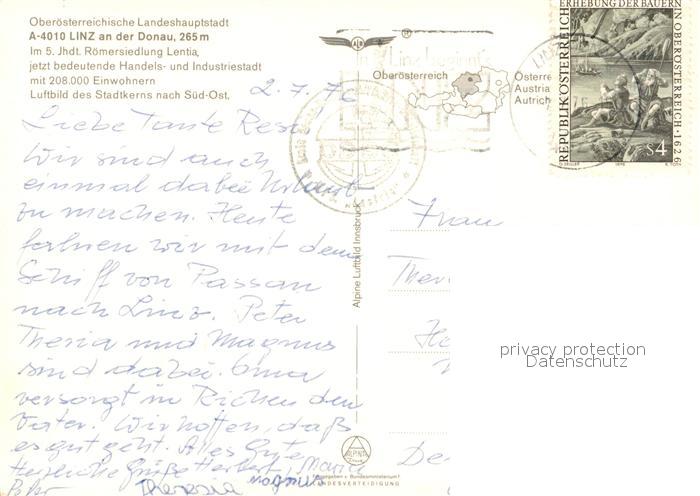 Oberösterreichische Landeshauptstadt
A-4010 LINZ an der Donau, 265 m
Im 5. Jhdt. Römersiedlung Lentia,
jetzt bedeutende Handels- und Industriestadt
mit 208.000 Einwohnern
Luftbild des Stadtkerns nach Süd-Ost.
2.7.76
Liebe Tante Resi
Wir sind auch
einmal dabei Urlaub
zu machen. Heute
fahren wir mit dem
Schiff von Passau
nach Linz. Peter
Theresia und Magnus
sind dabei. Oma
versorgt in Richen den
Vater. Wir hoffen, daß
es gut geht. Alles Gute
Herzliche Grüße Herbert, Maria
Peter Theresia Magnus
Oberösterreich
Österre
Austria
Autrich
ERHEBUNG DER BAUERN
IN OBERÖSTERREICH · 1626
REPUBLIK ÖSTERREICH
S4
in Linz beginnt's
LINZ
Alpine Luftbild Innsbruck
ALPINE
Freigegeben v. Bundesministerium f.
LANDESVERTEIDIGUNG
Frau
Ther
He
De
privacy protection
Datenschutz